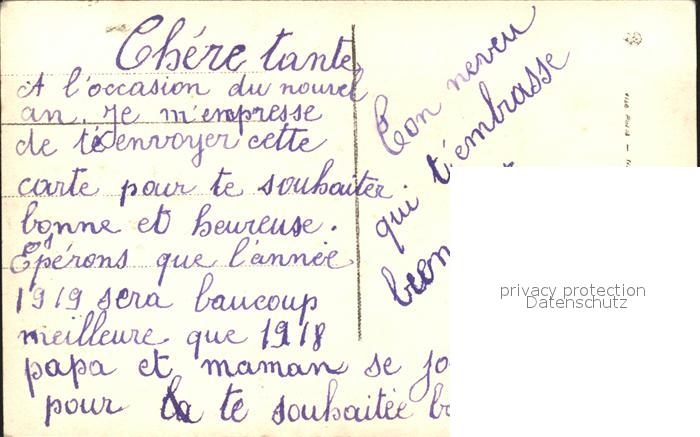 Chére tante
A l'occasion du nouvel
an. Je m'enpresse
de t'envoyer cette
carte pour te souhaiter
bonne et heureuse.
Espérons que l'année
1919 sera baucoup
meilleure que 1918
papa et maman se jo
pour te souhaitée bo
Ton neveu
qui t'embrasse
bien
privacy protection
Datenschutz